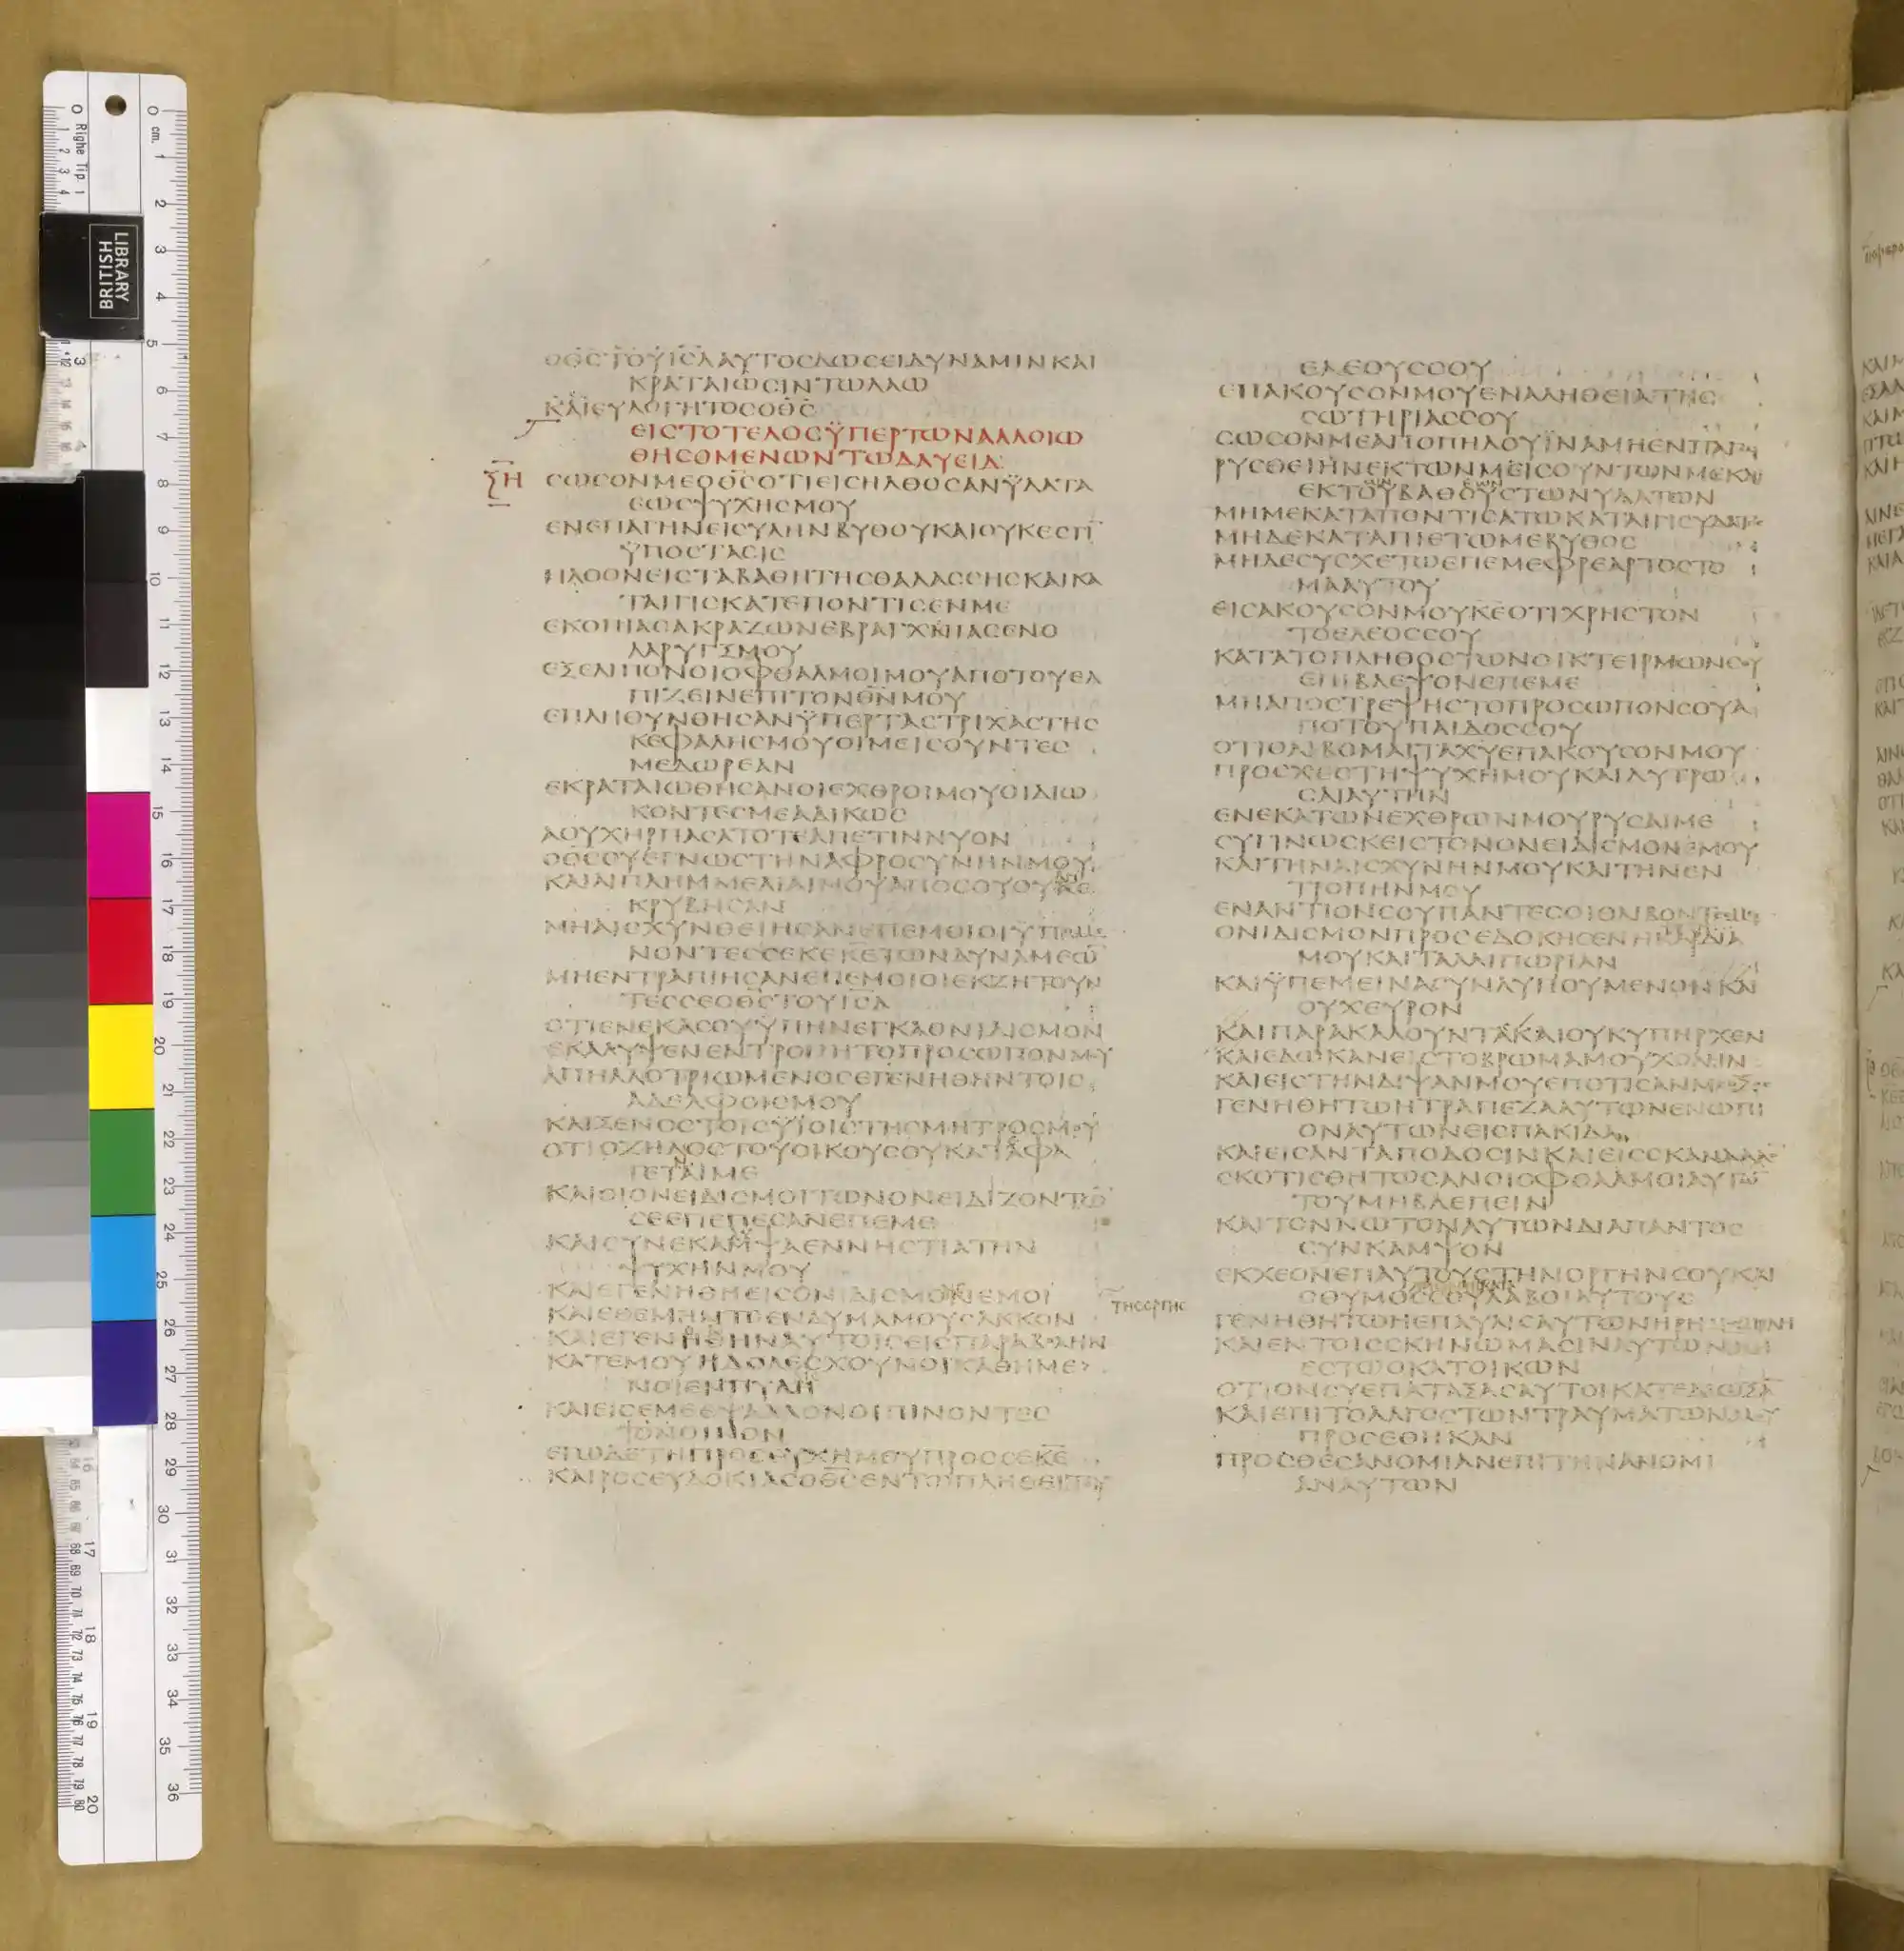 ΘϹ ΤΟΥ ΙϹΛ ΑΥΤΟϹ ΔΩϹΕΙ ΔΥΝΑΜΙΝ ΚΑΙ
ΚΡΑΤΑΙΩϹΙΝ ΤΩ ΛΑΩ
ΚΑΙ ΕΥΛΟΓΗΤΟϹ Ο ΘϹ
ΕΙϹ ΤΟ ΤΕΛΟϹ ΫΠΕΡ ΤΩΝ ΑΛΛΟΙΩ
ΘΗϹΟΜΕΝΩΝ ΤΩ ΔΑΥΕΙΔ
ΞΗ
ϹΩϹΟΝ ΜΕ Ο ΘϹ ΟΤΙ ΕΙϹΗΛΘΟϹΑΝ ΫΔΑΤΑ
ΕΩϹ ΨΥΧΗϹ ΜΟΥ
ΕΝΕΠΑΓΗΝ ΕΙϹ ΥΛΗΝ ΒΥΘΟΥ ΚΑΙ ΟΥΚ ΕϹΤΙ
ΫΠΟϹΤΑϹΙϹ
ΗΛΘΟΝ ΕΙϹ ΤΑ ΒΑΘΗ ΤΗϹ ΘΑΛΑϹϹΗϹ ΚΑΙ ΚΑ
ΤΑΙΓΙϹ ΚΑΤΕΠΟΝΤΙϹΕΝ ΜΕ
ΕΚΟΠΙΑϹΑ ΚΡΑΖΩΝ ΕΒΡΑΓΧΝΙΑϹΕΝ Ο
ΛΑΡΥΓΞ ΜΟΥ
ΕΞΕΛΙΠΟΝ ΟΙ ΟΦΘΑΛΜΟΙ ΜΟΥ ΑΠΟ ΤΟΥ ΕΛ
ΠΙΖΕΙΝ ΕΠΙ ΤΟΝ ΘΝ ΜΟΥ
ΕΠΛΗΘΥΝΘΗϹΑΝ ΫΠΕΡ ΤΑϹ ΤΡΙΧΑϹ ΤΗϹ
ΚΕΦΑΛΗϹ ΜΟΥ ΟΙ ΜΕΙϹΟΥΝΤΕϹ
ΜΕ ΔΩΡΕΑΝ
ΕΚΡΑΤΑΙΩΘΗϹΑΝ ΟΙ ΕΧΘΡΟΙ ΜΟΥ ΟΙ ΔΙΩ
ΚΟΝΤΕϹ ΜΕ ΑΔΙΚΩϹ
Α ΟΥΧ ΗΡΠΑϹΑ ΤΟΤΕ ΑΠΕΤΙΝΝΥΟΝ
Ο ΘϹ ϹΥ ΕΓΝΩϹ ΤΗΝ ΑΦΡΟϹΥΝΗΝ ΜΟΥ
ΚΑΙ ΑΙ ΠΛΗΜΜΕΛΙΑΙ ΜΟΥ ΑΠΟ ϹΟΥ ΟΥΚ Ε
ΚΡΥΒΗϹΑΝ
ΜΗ ΑΙϹΧΥΝΘΕΙΗϹΑΝ ΕΠ ΕΜΟΙ ΟΙ ΫΠΟΜΕ
ΝΟΝΤΕϹ ϹΕ ΚΕ ΚΕ ΤΩΝ ΔΥΝΑΜΕΩΝ
ΜΗ ΕΝΤΡΑΠΙΗϹΑΝ ΕΠ ΕΜΟΙ ΟΙ ΕΚΖΗΤΟΥΝ
ΤΕϹ ϹΕ Ο ΘϹ ΤΟΥ ΙϹΛ
ΟΤΙ ΕΝΕΚΑ ϹΟΥ ΫΠΗΝΕΓΚΑ ΟΝΙΔΙϹΜΟΝ
ΕΚΑΛΥΨΕΝ ΕΝΤΡΟΠΗ ΤΟ ΠΡΟϹΩΠΟΝ ΜΟΥ
ΑΠΗΛΛΟΤΡΙΩΜΕΝΟϹ ΕΓΕΝΗΘΗΝ ΤΟΙϹ
ΑΔΕΛΦΟΙϹ ΜΟΥ
ΚΑΙ ΞΕΝΟϹ ΤΟΙϹ ΫΙΟΙϹ ΤΗϹ ΜΗΤΡΟϹ ΜΟΥ
ΟΤΙ Ο ΖΗΛΟϹ ΤΟΥ ΟΙΚΟΥ ϹΟΥ ΚΑΤΑΦΑ
ΓΕΤΑΙ ΜΕ
ΚΑΙ ΟΙ ΟΝΕΙΔΙϹΜΟΙ ΤΩΝ ΟΝΕΙΔΙΖΟΝΤΩΝ
ϹΕ ΕΠΕΠΕϹΑΝ ΕΠ ΕΜΕ
ΚΑΙ ϹΥΝΕΚΑΜΨΑ ΕΝ ΝΗϹΤΙΑ ΤΗΝ
ΨΥΧΗΝ ΜΟΥ
ΚΑΙ ΕΓΕΝΗΘΗ ΕΙϹ ΟΝΙΔΙϹΜΟΝ ΕΜΟΙ
ΚΑΙ ΕΘΕΜΗΝ ΤΟ ΕΝΔΥΜΑ ΜΟΥ ϹΑΚΚΟΝ
ΚΑΙ ΕΓΕΝΗΘΗΝ ΑΥΤΟΙϹ ΕΙϹ ΠΑΡΑΒΟΛΗΝ
ΚΑΤ ΕΜΟΥ ΗΔΟΛΕϹΧΟΥΝ ΟΙ ΚΑΘΗΜΕ
ΝΟΙ ΕΝ ΠΥΛΗ
ΚΑΙ ΕΙϹ ΕΜΕ ΕΨΑΛΛΟΝ ΟΙ ΠΙΝΟΝΤΕϹ
ΤΟΝ ΟΙΝΟΝ
ΕΓΩ ΔΕ ΤΗ ΠΡΟϹΕΥΧΗ ΜΟΥ ΠΡΟϹ ϹΕ ΚΕ
ΚΑΙΡΟϹ ΕΥΔΟΚΙΑϹ Ο ΘϹ ΕΝ ΤΩ ΠΛΗΘΕΙ ΤΟΥ
ΕΛΕΟΥϹ ϹΟΥ
ΕΠΑΚΟΥϹΟΝ ΜΟΥ ΕΝ ΑΛΗΘΕΙΑ ΤΗϹ
ϹΩΤΗΡΙΑϹ ϹΟΥ
ϹΩϹΟΝ ΜΕ ΑΠΟ ΠΗΛΟΥ ΪΝΑ ΜΗ ΕΝΠΑΓΩ
ΡΥϹΘΕΙΗΝ ΕΚ ΤΩΝ ΜΕΙϹΟΥΝΤΩΝ ΜΕ ΚΑΙ
ΕΚ ΤΟΥ ΒΑΘΟΥϹ ΤΩΝ ΥΔΑΤΩΝ
ΜΗ ΜΕ ΚΑΤΑΠΟΝΤΙϹΑΤΩ ΚΑΤΑΙΓΙϹ ΥΔΑΤΟϹ
ΜΗΔΕ ΚΑΤΑΠΙΕΤΩ ΜΕ ΒΥΘΟϹ
ΜΗΔΕ ϹΥϹΧΕΤΩ ΕΠ ΕΜΕ ΦΡΕΑΡ ΤΟ ϹΤΟ
ΜΑ ΑΥΤΟΥ
ΕΙϹΑΚΟΥϹΟΝ ΜΟΥ ΚΕ ΟΤΙ ΧΡΗϹΤΟΝ
ΤΟ ΕΛΕΟϹ ϹΟΥ
ΚΑΤΑ ΤΟ ΠΛΗΘΟϹ ΤΩΝ ΟΙΚΤΕΙΡΜΩΝ ϹΟΥ
ΕΠΙΒΛΕΨΟΝ ΕΠ ΕΜΕ
ΜΗ ΑΠΟϹΤΡΕΨΗϹ ΤΟ ΠΡΟϹΩΠΟΝ ϹΟΥ Α
ΠΟ ΤΟΥ ΠΑΙΔΟϹ ϹΟΥ
ΟΤΙ ΘΛΙΒΟΜΑΙ ΤΑΧΥ ΕΠΑΚΟΥϹΟΝ ΜΟΥ
ΠΡΟϹΧΕϹ ΤΗ ΨΥΧΗ ΜΟΥ ΚΑΙ ΛΥΤΡΩ
ϹΑΙ ΑΥΤΗΝ
ΕΝΕΚΑ ΤΩΝ ΕΧΘΡΩΝ ΜΟΥ ΡΥϹΑΙ ΜΕ
ϹΥ ΓΙΝΩϹΚΕΙϹ ΤΟΝ ΟΝΕΙΔΙϹΜΟΝ ΜΟΥ
ΚΑΙ ΤΗΝ ΑΙϹΧΥΝΗΝ ΜΟΥ ΚΑΙ ΤΗΝ ΕΝ
ΤΡΟΠΗΝ ΜΟΥ
ΕΝΑΝΤΙΟΝ ϹΟΥ ΠΑΝΤΕϹ ΟΙ ΘΛΙΒΟΝΤΕϹ ΜΕ
ΟΝΙΔΙϹΜΟΝ ΠΡΟϹΕΔΟΚΗϹΕΝ Η ΚΑΡΔΙΑ
ΜΟΥ ΚΑΙ ΤΑΛΑΙΠΩΡΙΑΝ
ΚΑΙ ΫΠΕΜΕΙΝΑ ϹΥΝΛΥΠΟΥΜΕΝΟΝ ΚΑΙ
ΟΥΧ ΕΥΡΟΝ
ΚΑΙ ΠΑΡΑΚΑΛΟΥΝΤΑ ΚΑΙ ΟΥΚ ΥΠΗΡΧΕΝ
ΚΑΙ ΕΔΩΚΑΝ ΕΙϹ ΤΟ ΒΡΩΜΑ ΜΟΥ ΧΟΛΗΝ
ΚΑΙ ΕΙϹ ΤΗΝ ΔΙΨΑΝ ΜΟΥ ΕΠΟΤΙϹΑΝ ΜΕ ΟΞΟϹ
ΓΕΝΗΘΗΤΩ Η ΤΡΑΠΕΖΑ ΑΥΤΩΝ ΕΝΩΠΙ
ΟΝ ΑΥΤΩΝ ΕΙϹ ΠΑΚΙΔΑ
ΚΑΙ ΕΙϹ ΑΝΤΑΠΟΔΟϹΙΝ ΚΑΙ ΕΙϹ ϹΚΑΝΔΑΛΟΝ
ϹΚΟΤΙϹΘΗΤΩϹΑΝ ΟΙ ΟΦΘΑΛΜΟΙ ΑΥΤΩΝ
ΤΟΥ ΜΗ ΒΛΕΠΕΙΝ
ΚΑΙ ΤΟΝ ΝΩΤΟΝ ΑΥΤΩΝ ΔΙΑΠΑΝΤΟϹ
ϹΥΝΚΑΜΨΟΝ
ΕΚΧΕΟΝ ΕΠ ΑΥΤΟΥϹ ΤΗΝ ΟΡΓΗΝ ϹΟΥ ΚΑΙ
Ο ΘΥΜΟϹ ϹΟΥ ΛΑΒΟΙ ΑΥΤΟΥϹ
ΤΗϹ ΟΡΓΗϹ
ΓΕΝΗΘΗΤΩ Η ΕΠΑΥΛΙϹ ΑΥΤΩΝ ΗΡΗΜΩΜΕΝΗ
ΚΑΙ ΕΝ ΤΟΙϹ ϹΚΗΝΩΜΑϹΙΝ ΑΥΤΩΝ ΜΗ
ΕϹΤΩ Ο ΚΑΤΟΙΚΩΝ
ΟΤΙ ΟΝ ϹΥ ΕΠΑΤΑΞΑϹ ΑΥΤΟΙ ΚΑΤΕΔΙΩΞΑ
ΚΑΙ ΕΠΙ ΤΟ ΑΛΓΟϹ ΤΩΝ ΤΡΑΥΜΑΤΩΝ ΜΟΥ
ΠΡΟϹΕΘΗΚΑΝ
ΠΡΟϹΘΕϹ ΑΝΟΜΙΑΝ ΕΠΙ ΤΗΝ ΑΝΟΜΙ
ΑΝ ΑΥΤΩΝ
BRITISH
LIBRARY